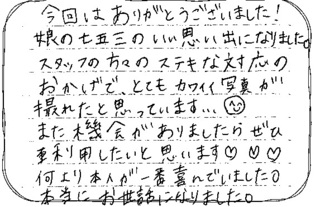 今回はありがとうございました！
娘の七五三のいい思い出になりました。
スタッフの方々のステキな対応の
おかげで、とてもカワイイ写真が
撮れたと思っています…
また機会がありましたらぜひ
再利用したいと思います♡♡♡
何より本人が一番喜んでいました。
本当にお世話になりました。